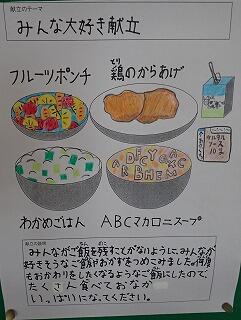 献立のテーマ
みんな大好き献立
フルーツポンチ
鶏のからあげ
わかめごはん
ABCマカロニスープ
献立の説明
みんながご飯を残すことがないように、みんなが
好きそうなご飯やおかずをつめこみました。何度
もおかわりをしたくなるようなご飯にしたので、
たくさん食べておなか
いっぱいになってください。